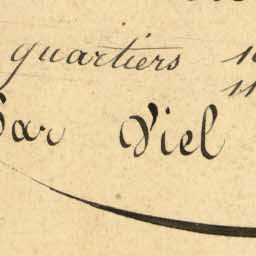 quartiers
Par Viel